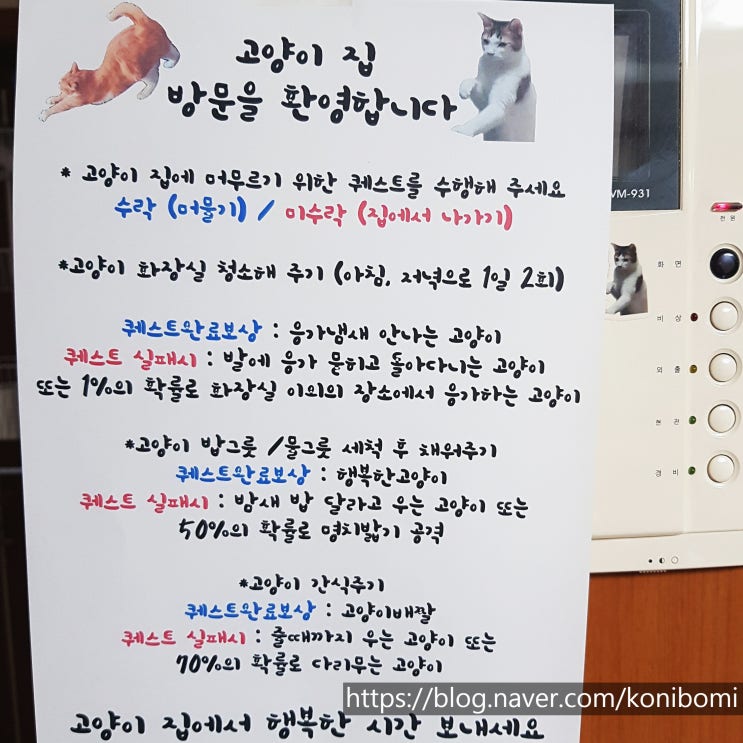 고양이 집
방문을 환영합니다
* 고양이 집에 머무르기 위한 퀘스트를 수행해 주세요
수락 (머물기) / 미수락 (집에서 나가기)
*고양이 화장실 청소해 주기 (아침, 저녁으로 1일 2회)
퀘스트완료보상 : 응가냄새 안나는 고양이
퀘스트 실패시 : 발에 응가 묻히고 돌아다니는 고양이
또는 1%의 확률로 화장실 이외의 장소에서 응가하는 고양이
*고양이 밥그릇 /물그릇 세척 후 채워주기
퀘스트완료보상 : 행복한고양이
퀘스트 실패시 : 밤새 밥 달라고 우는 고양이 또는
50%의 확률로 명치밟기 공격
*고양이 간식주기
퀘스트완료보상 : 고양이배짤
퀘스트 실패시 : 줄때까지 우는 고양이 또는
70%의 확률로 다리무는 고양이
고양이 집에서 행복한 시간 보내세요
VM-931
전원
화면
비상
외출
현관
경비
https://blog.naver.com/konibomi